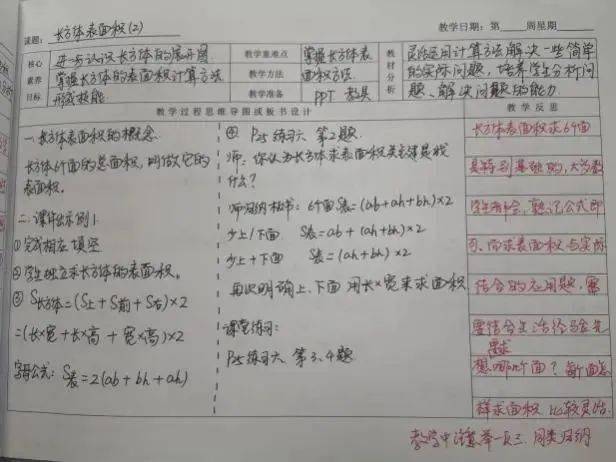 课题: 长方体表面积(2)
教学日期: 第 周星期
核心素养目标
进一步认识长方体的展开图
掌握长方体的表面积计算方法
形成技能
教学重难点
掌握长方体表
面积方法
教学方法
教学准备
PPT 教具
教材分析
灵活运用计算方法解决一些简单
的实际问题，培养学生分析问
题、解决问题的能力
教学过程思维导图或板书设计
教学反思
一.长方体表面积的概念
长方体6个面的总面积，叫做它的
表面积。
二.课件出示例1
①完成相应填空
②学生独立求长方体的表面积。
③ S长方体=(S上+S前+S右)×2
=(长×宽+长×高+宽×高)×2
字母公式: S表=2(ab+bh+ah)
④ P25 练习六 第2题.
师: 你认为长方体求表面积关键是找
什么?
师归纳板书: 6个面 S表=(ab+ah+bh)×2
少上/下面 S表=ab+(ah+bh)×2
少上+下面 S表=(ah+bh)×2
再次明确上、下面 用长×宽来求面积
课堂练习:
P25练习六 第3、4题
长方体表面积求6个面
是特别基础的，大多数
学生都会，熟记公式即
可、而求表面积与实际
结合的应用题，需
要结合生活经验先
想哪几个面? 每个面怎
样求面积 比较灵活.
教学中注意举一反三. 同类归纳